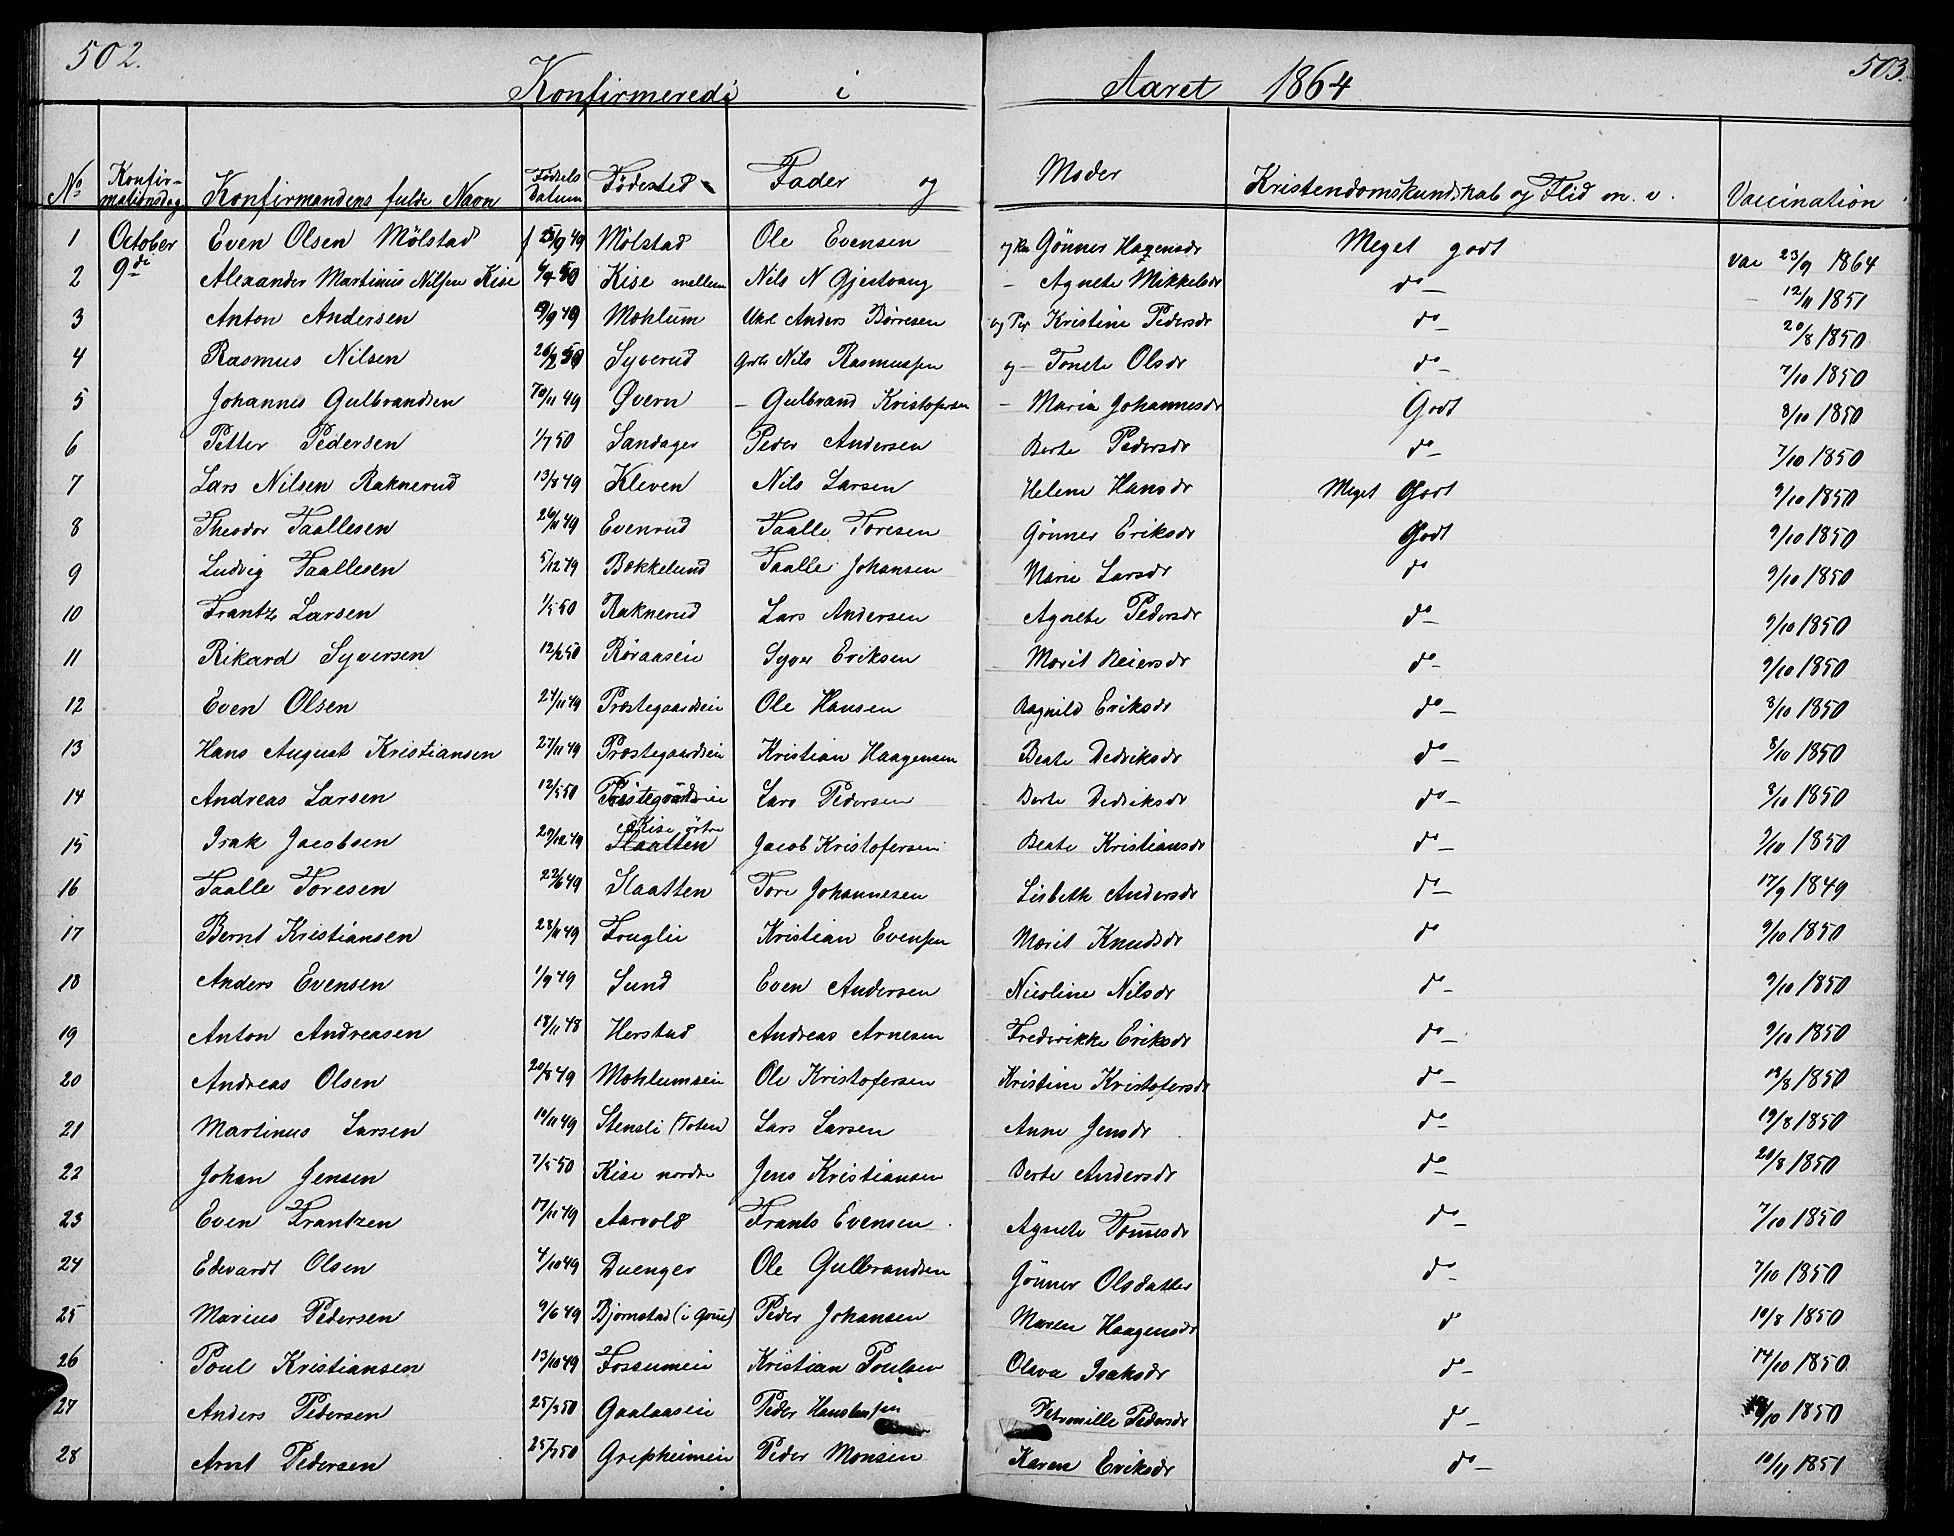 502.
503.
Konfirmerede i Aaret 1864
No Konfirmationsdag Konfirmandens fulde Navn Fødsels Datum Fødested Fader og Moder Kristendomskundskab og Flid m. v. Vaccination
1 October Even Olsen Mølstad f /9 49 Mølstad Ole Evensen Gønner Hagensdr Meget godt vac 23/9 1864
2 9de Alexander Martinus Nilsen Kise /4 50 Kise mellem Nils N Gjestvang - Agnete Mikkelsdr do - - 12/11 1851
3 Anton Andersen /9 49 Mohlum Anders Børresen og Kristine Pedersdr do - 20/8 1850
4 Rasmus Nilsen 26/2 50 Syverud Nils Rasmussen og - Tonete Olsdr do - 7/10 1850
5 Johannes Gulbrandsen /11 49 Øvern - Gulbrand Kristofersen - Maria Johannesdr Godt 8/10 1850
6 Petter Pedersen 1/7 50 Sandager Peder Andersen Berte Pedersdr do - 7/10 1850
7 Lars Nilsen Raknerud 13/8 49 Kleven Nils Larsen Helene Hansdr Meget Godt 9/10 1850
8 Theodor Taallesen 26/11 49 Evenrud Taalle Toresen Gønner Eriksdr Godt 9/10 1850
9 Ludvig Taallesen 5/12 49 Bækkelund Taalle Johansen Marie Larsdr do 9/10 1850
10 Frantz Larsen 1/5 50 Raknerud Lars Andersen Agnete Pedersdr do - 9/10 1850
11 Rikard Syversen 12/2 50 Røraaseie Syver Eriksen Marit Reiersdr do - 9/10 1850
12 Even Olsen 24/11 49 Præstegaardseie Ole Hansen Ragnild Eriksdr do - 8/10 1850
13 Hans August Kristiansen 27/11 49 Præstegaardseie Kristian Haagensen Beate Dedriksdr do - 8/10 1850
14 Andreas Larsen 12/5 50 Præstegaardseie Lars Pedersen Berte Dedriksdr do - 8/10 1850
15 Isak Jacobsen 29/12 49 Kise østre Slaatten Jacob Kristofersen Beate Kristiansdr do - 9/10 1850
16 Taalle Toresen 22/6 49 Slaatten Tore Johannesen Lisbeth Andersdr do - 17/9 1849
17 Bernt Kristiansen 28/11 49 Fuglie Kristian Evensen Marit Knudsdr do 9/10 1850
18 Anders Evensen 1/9 49 Sund Even Andersen Nicoline Nilsdr do - 9/10 1850
19 Anton Andreasen 18/11 48 Herstad Andreas Arnesen Frederikke Eriksdr do - 9/10 1850
20 Andreas Olsen 20/8 49 Mohlumseie Ole Kristofersen Kristine Kristofersdr do - 18/8 1850
21 Martinus Larsen 10/11 49 Stensli (Toten) Lars Larsen Anne Jensdr do - 19/8 1850
22 Johan Jensen 7/5 50 Kise nordre Jens Kristiansen Berte Andersdr do - 20/8 1850
23 Even Frantzen 17/11 49 Aarvold Frants Evensen Agnete Tomesdr do - 7/10 1850
24 Edevardt Olsen 4/10 49 Duenger Ole Gulbrandsen Gønner Olsdatter do - 7/10 1850
25 Marius Pedersen 9/6 49 Bjørnstad (i Grue) Peder Johansen Maren Haagensdr do 10/8 1850
26 Poul Kristiansen 13/10 49 Fossumeie Kristian Poulsen Olava Isaksdr do - 14/10 1850
27 Anders Pedersen 25/5 50 Gaalaaseie Peder Hanstensen Petronille Pedersdr do - /10 1850
28 Arnt Pedersen 25/7 50 Grepheimeie Peder Monsen Karen Eriksdr do - 10/11 1851